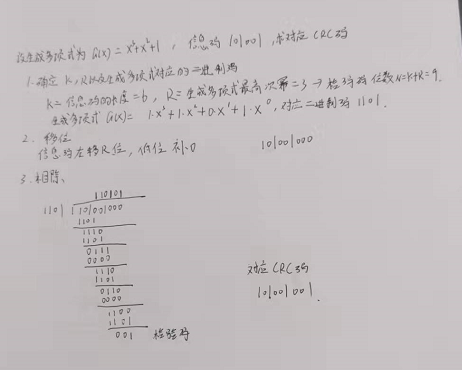 设生成多项式为 G(x) = x³+x²+1 , 信息码 101001 ,求对应 CRC码
1. 确定 K, R以及生成多项式对应的二进制码
K = 信息码的长度 = 6 , R = 生成多项式最高次幂 = 3 → 校验码位数 N=K+R=9.
生成多项式 G(x) = 1·x³+1·x²+0·x¹+1·x⁰, 对应二进制码 1101.
2. 移位
信息码左移R位, 低位补0 101001000
3. 相除.
110101
1101 101001000
1101
1110
1101
0111
0000
1110
1101
0110
0000
1100
1101
001 校验码
对应 CRC码
101001001.